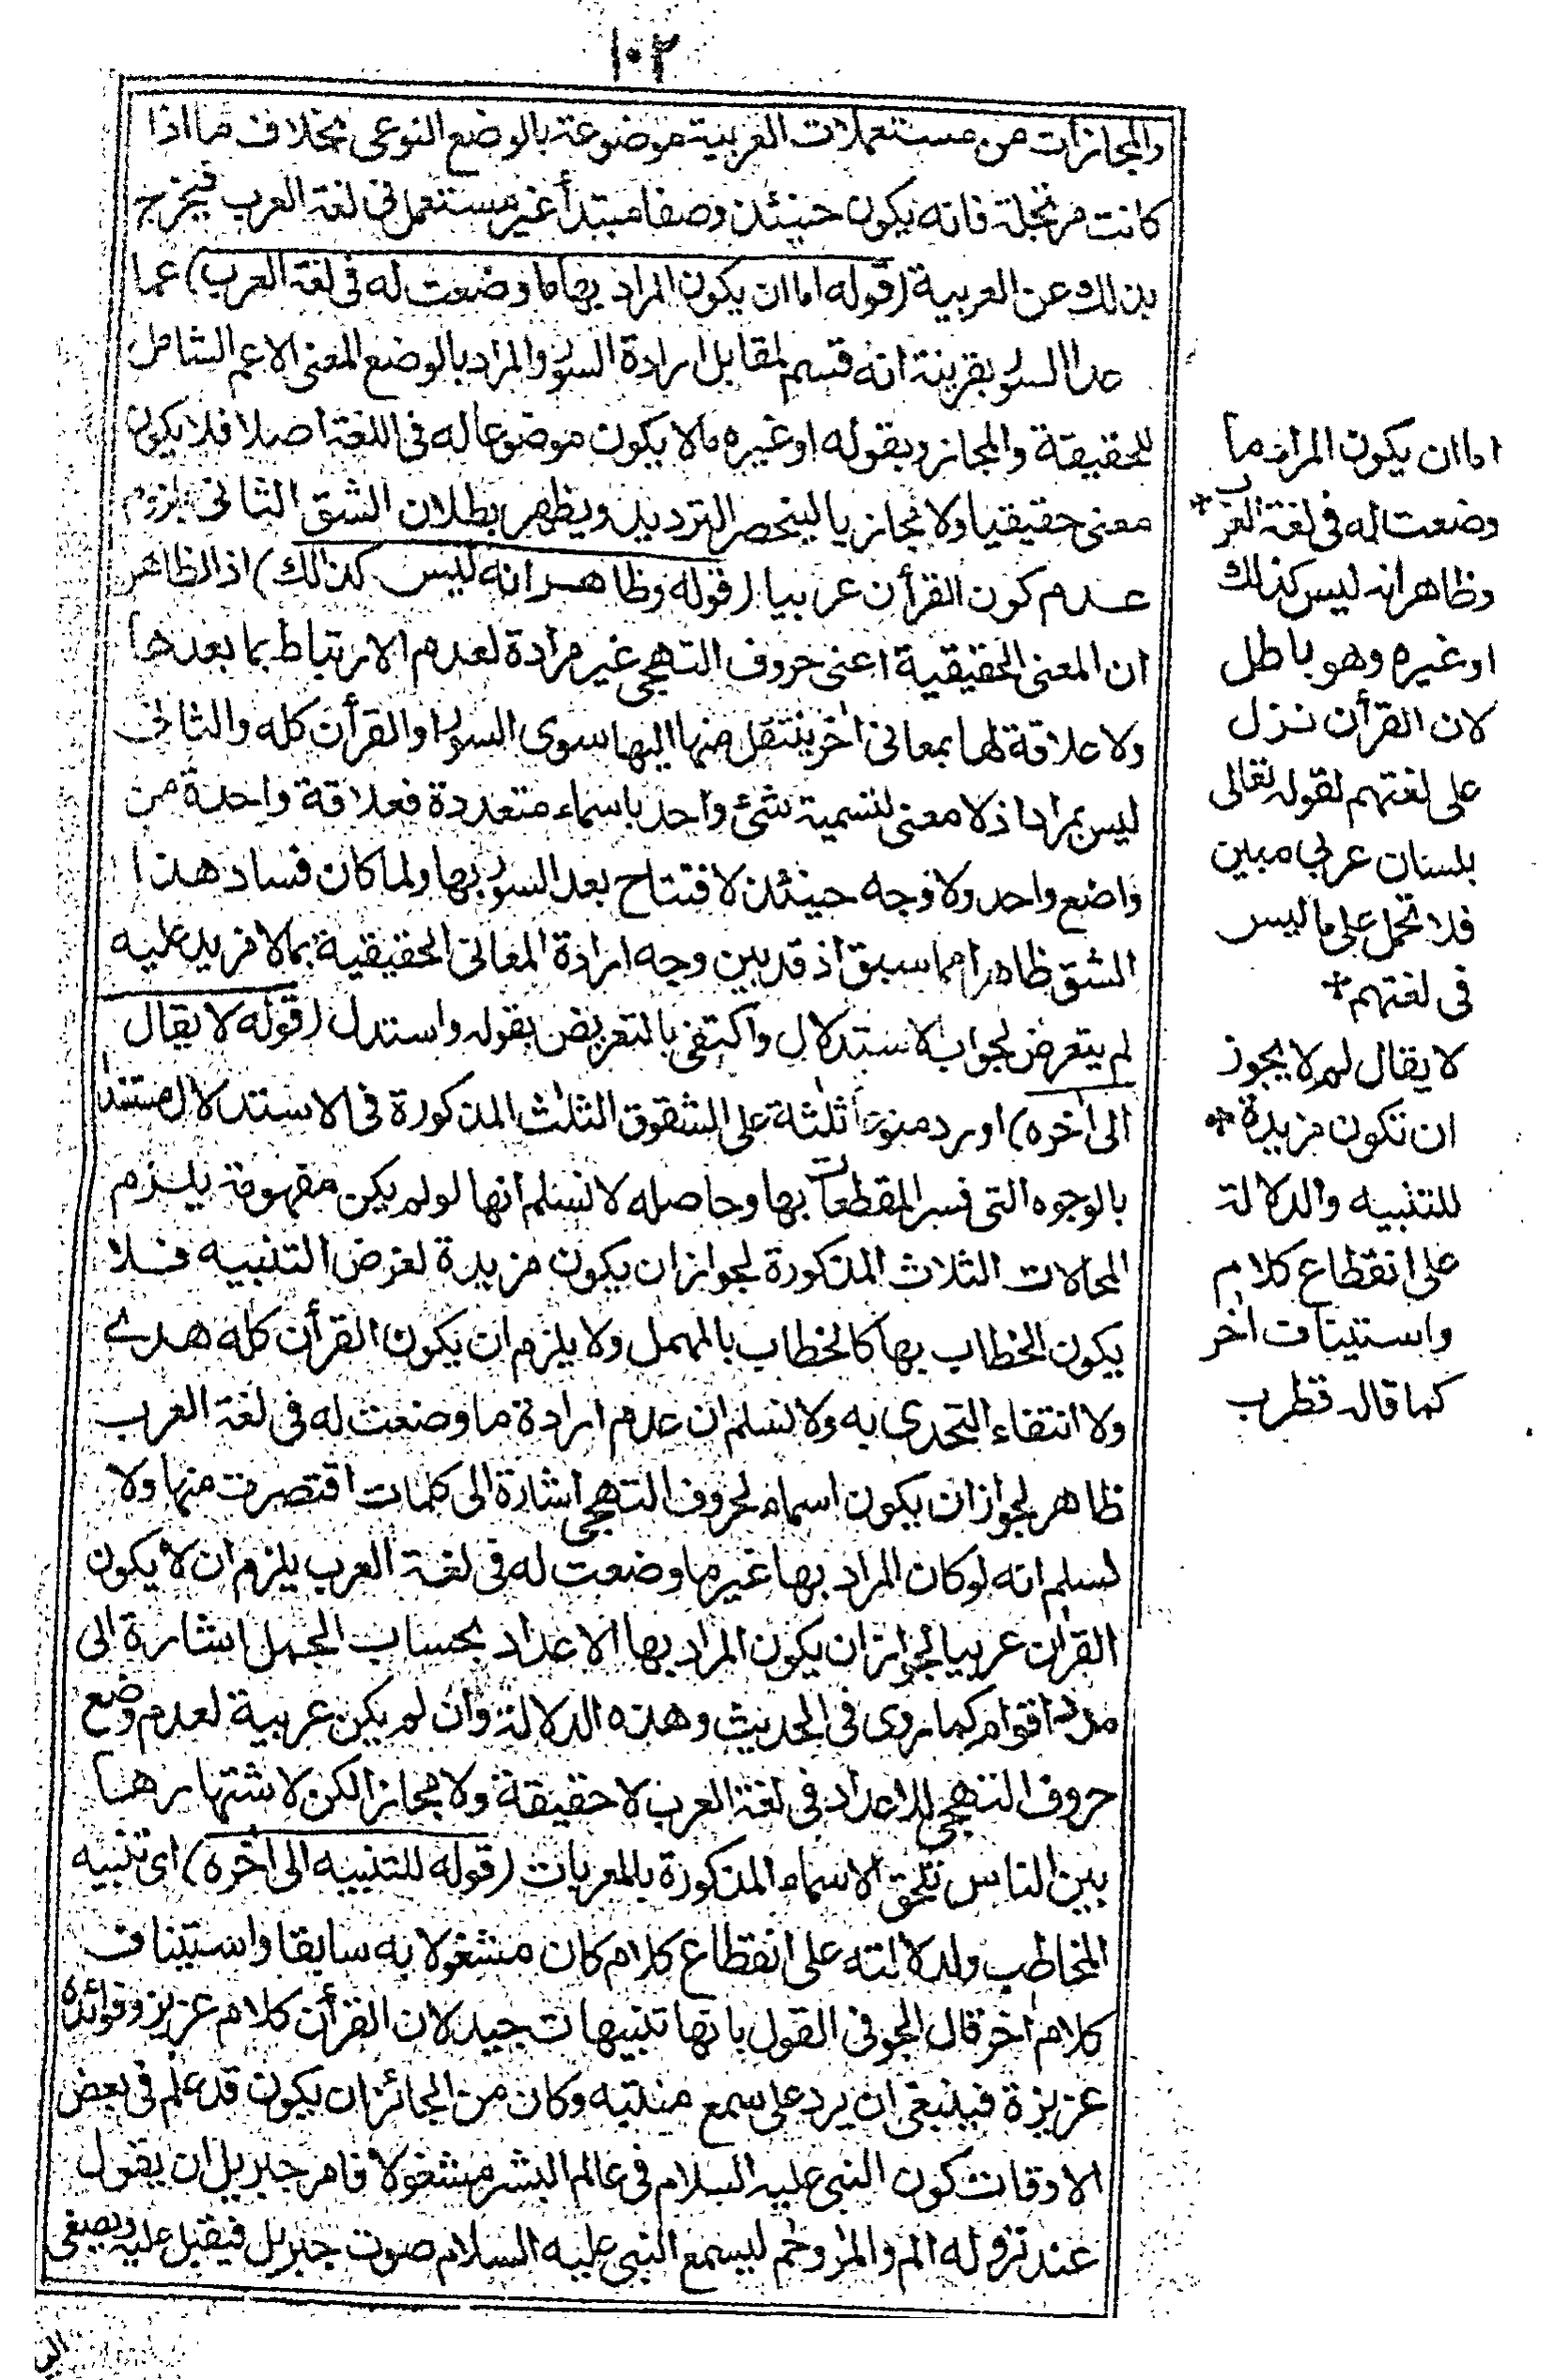 ١٠٢
والمجازات من مستعملات العربية موضوعة بالوضع النوعى بخلاف ما اذا
كانت مرتجلة فانه يكون حينئذ وصفا مبتدأ غير مستعمل فى لغة العرب فيخرج
بذلك عن العربية (قوله اما ان يكون المراد بها ما وضعت له فى لغة العرب) عما
عدا السور بقرينة انه قسم لمقابل ارادة السور والمراد بالوضع المعنى الاعم الشامل
للحقيقة والمجاز وبقوله او غيره ما لا يكون موضوعا له فى اللغة اصلا فلا يكون
معنى حقيقيا ولا مجازيا لينحصر الترديد ويظهر بطلان الشق الثانى بلزوم
عدم كون القرأن عربيا (قوله وظاهر انه ليس كذالك) اذ الظاهر
ان المعنى الحقيقية اعنى حروف التهجى غير مرادة لعدم الارتباط بما بعدها
ولا علاقة لها بمعانى اخر ينتقل منها اليها سوى السور او القرأن كله والثانى
ليس بمراد اذ لا معنى لتسمية شئ واحد باسماء متعددة فعلاقة واحدة من
واضع واحد ولا وجه حينئذ لافتتاح بعد السور بها ولما كان فساد هذا
الشق ظاهرا مما سبق اذ قد بين وجه ارادة المعانى الحقيقية بما لا مزيد عليه
لم يتعرض لجواب الاستدلال واكتفى بالتعريض بقوله واستدل (قوله لا يقال
الى أخره) اورد منوعا ثلثة على الشقوق الثلث المذكورة فى الاستدلال مستندا
بالوجوه التى فسر المقطعات بها وحاصله لا نسلم انها لو لم يكن مفهومة يلزم
المحالات الثلاث المذكورة لجواز ان يكون مزيدة لغرض التنبيه فلا
يكون الخطاب بها كالخطاب بالمهمل ولا يلزم ان يكون القرأن كله هدى
ولا انتفاء التحدى به ولا نسلم ان عدم ارادة ما وضعت له فى لغة العرب
ظاهر لجواز ان يكون اسماء لحروف التهجى اشارة الى كلمات اقتصرت منها ولا
نسلم انه لو كان المراد بها غير ما وضعت له فى لغة العرب يلزم ان لا يكون
القران عربيا لجواز ان يكون المراد بها الاعداد بحساب الجمل اشارة الى
مدد اقوام كما روى فى الحديث وهذه الدلالة وان لم يكن عربية لعدم وضع
حروف التهجى للاعداد فى لغة العرب لا حقيقة ولا مجازا لكن لاشتهارها
بين الناس تلحق الاسماء المذكورة بالمعربات (قوله للتنبيه الى أخره) اى تنبيه
المخاطب ولدلالته على انقطاع كلام كان مشغولا به سابقا واستيناف
كلام اخر قال الجوفى القول بانها تنبيهات جيد لان القرأن كلام عزيز وفوائده
عزيزة فينبغى ان يرد على سمع منتبه وكان من الجائز ان يكون قد علم فى بعض
الاوقات كون النبى عليه السلام فى عالم البشر مشغولا فامر جبريل ان يقول
عند نزوله الم والمر وحم ليسمع النبى عليه السلام صوت جبريل فيقبل عليه ويصغى
اما ان يكون المراد بها
وضعت له فى لغة العرب *
وظاهر انه ليس كذلك
او غيره وهو باطل
لان القرأن نزل
على لغتهم لقوله تعالى
بلسان عربي مبين
فلا تحمل على ما ليس
فى لغتهم *
لا يقال لم لا يجوز
ان تكون مزيدة *
للتنبيه والدلالة
على انقطاع كلام
واستيناف اخر
كما قاله قطرب